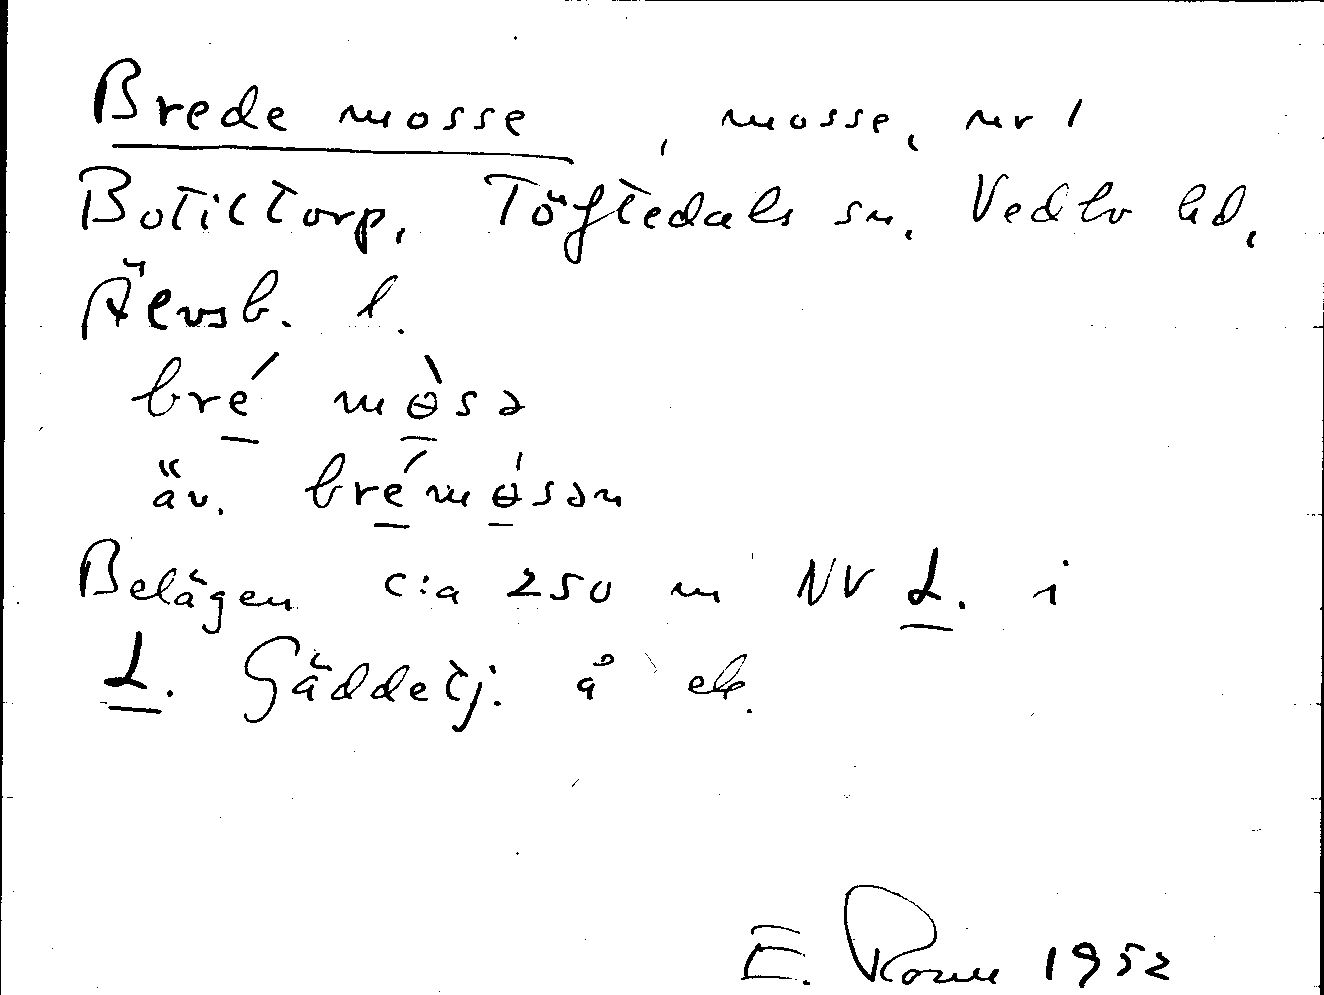 Brede mosse, mosse, nr 1
Botiltorp, Töftedals sn, Vedbo hd,
Älvsb. l.
bré mɵ̀sə
äv. brémɵ́sən
Belägen c:a 250 m NV L. i
L. Gäddetj. å ek.
E. 1952